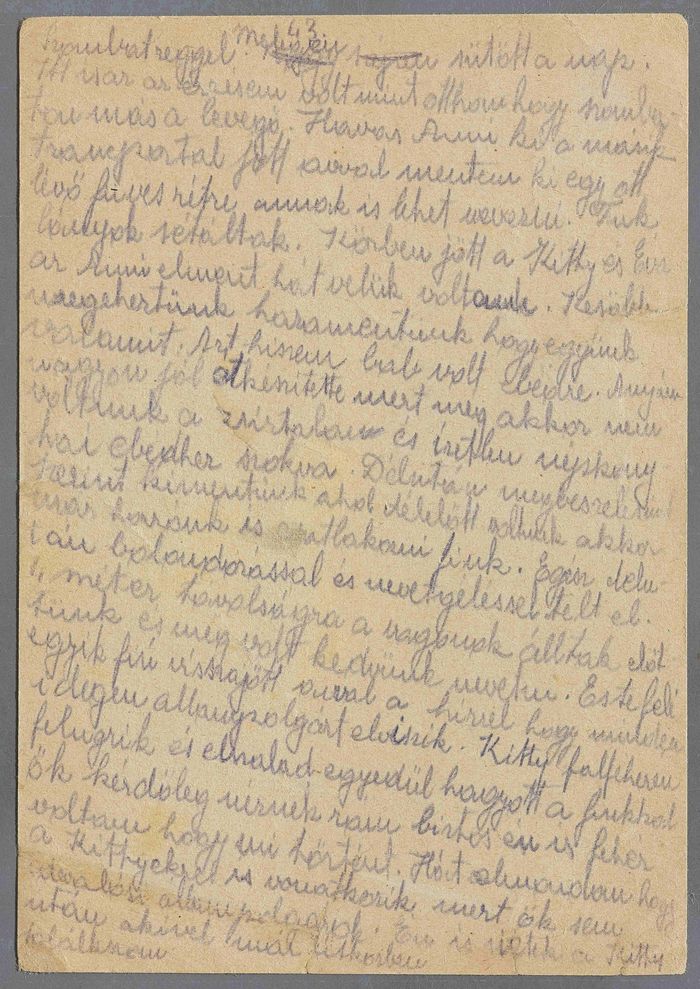 43
Szombat reggel. Megint sütött a nap.
Itt is az az érzésem volt mint otthon hogy szomba-
ton más a levegő. Havas Anni ki a mánk
transportal jött avval mentem ki egy ott
lévő füves rétre, annak is lehet nevezni. Fiuk
lányok sétáltak. Közben jött a Kitthy és Éva
az Anni elment hát velük voltunk. Később
megéheztünk hazamentünk hogy együnk
valamit. Azt hiszem bab volt ebédre. Anyám
nagyon jól elkészitette mert még akkor nem
voltunk a zsirtalan és izetlen népskony-
hai ebédhez szokva. Délután megbeszélésünk
szerint kimentünk ahol délelőtt voltunk akkor
már hozzánk is csatlakozni fiuk. Egész délu-
tán bolondozással és nevetgéléssel telt el.
1, méter távolságra a vagonok álltak előt-
tünk és még volt kedvünk nevetni. Este felé
egyik fiu visszajött avval a hirrel hogy minden
idegen állampolgárt elviszik. Kitthy falfehéren
felugrik és elszalad egyedül hagyott a fiukkal
ők kérdőleg néznek rám biztos én is fehér
voltam hogy mi történt. Hát elmondom hogy
a Kitthyékre is vonatkozik mert ők sem
állampolgárok. Én is sietek a Kitthy
után akivel már utközben
találkozom